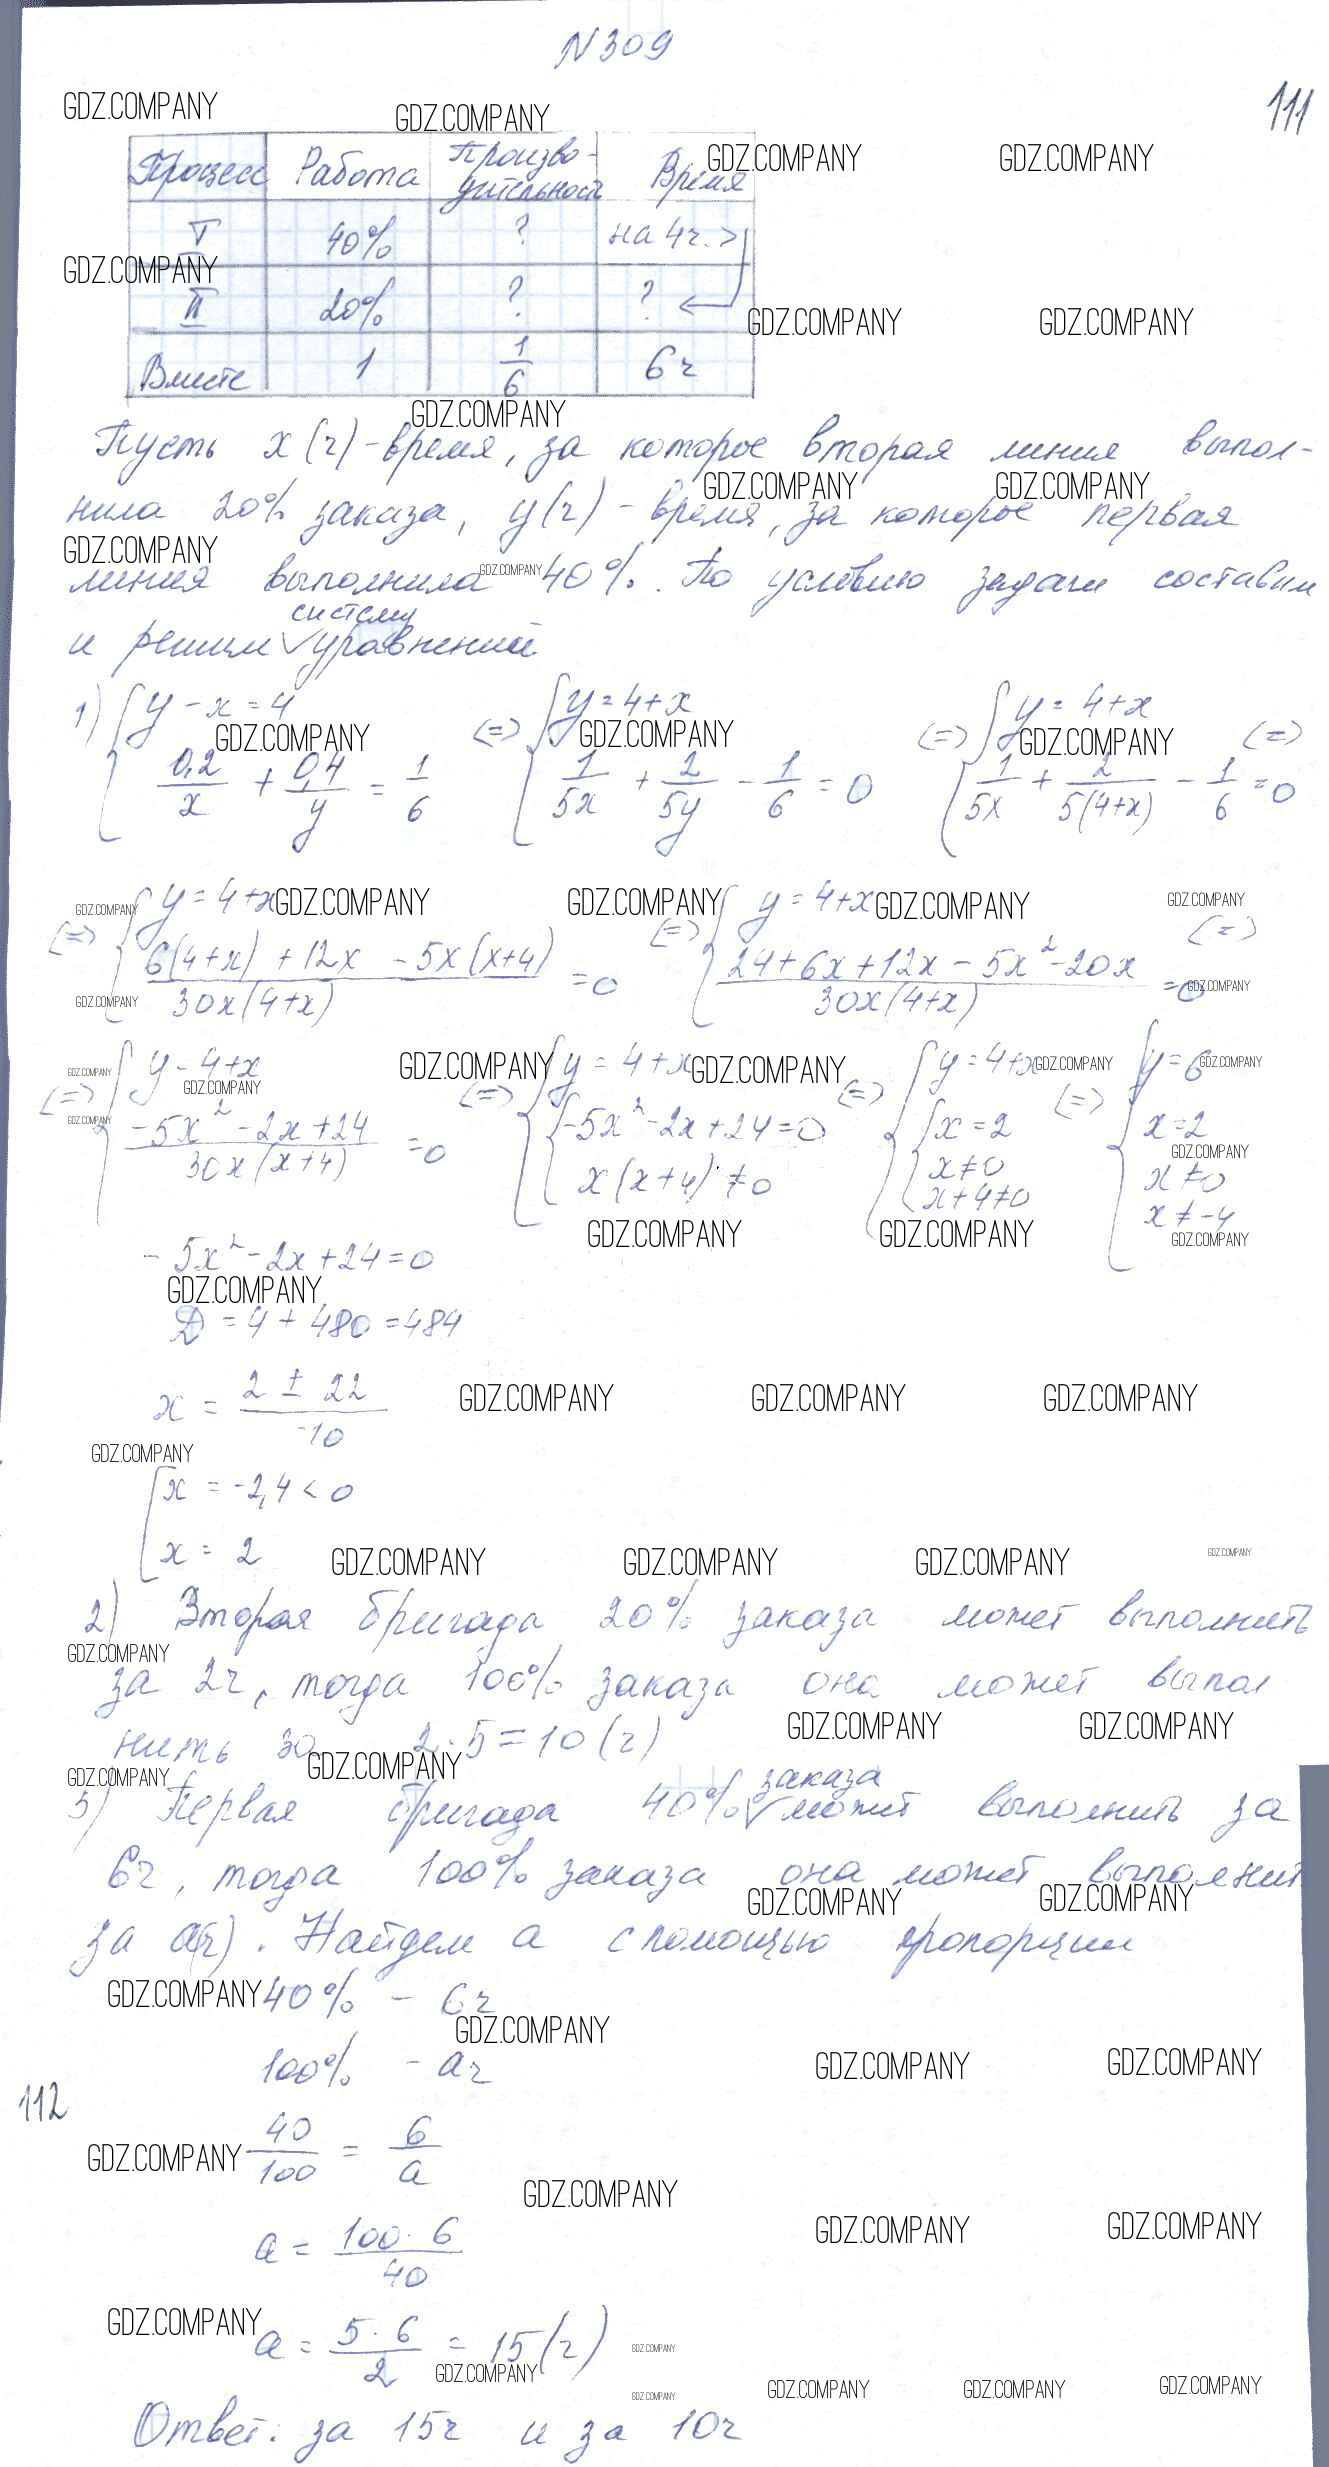 N 309
111
Процесс Работа Производительность Время
I 40% ? на 4ч. >
II 20% ? ?
Вместе 1 1/6 6ч
Пусть x (ч) - время, за которое вторая линия выпол-
нила 20% заказа, y (ч) - время, за которое первая
линия выполнила 40%. По условию задачи составим
и решим систему уравнений
1) { y - x = 4 (=) { y = 4+x (=) { y = 4+x (=)
0,2/x + 0,4/y = 1/6 1/5x + 2/5y - 1/6 = 0 1/5x + 2/5(4+x) - 1/6 = 0
(=) { y = 4+x (=) { y = 4+x (=)
6(4+x) + 12x - 5x(x+4) / 30x(4+x) = 0 24+6x+12x-5x²-20x / 30x(4+x) = 0
(=) { y - 4+x (=) { y = 4+x (=) { y = 4+x (=) { y = 6
-5x²-2x+24 / 30x(x+4) = 0 { -5x²-2x+24=0 { x = 2 x = 2
x(x+4) ≠ 0 x ≠ 0 x ≠ 0
x+4 ≠ 0 x ≠ -4
-5x²-2x+24=0
D = 4 + 480 = 484
x = 2 ± 22 / -10
[ x = -2,4 < 0
x = 2
2) Вторая бригада 20% заказа может выполнить
за 2ч, тогда 100% заказа она может выпол
нить за 2·5=10 (ч)
3) Первая бригада 40% заказа может выполнить за
6ч, тогда 100% заказа она может выполнит
за a(ч). Найдем a с помощью пропорции
40% - 6ч
100% - aч
112
40/100 = 6/a
a = 100·6 / 40
a = 5·6 / 2 = 15 (ч)
Ответ: за 15ч и за 10ч
GDZ.COMPANY